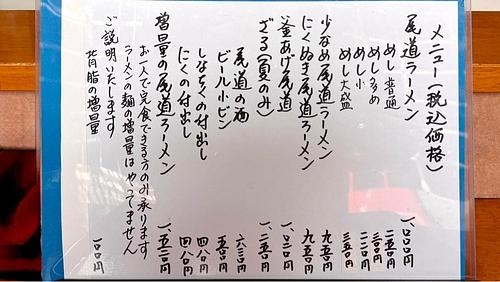 メニュー(税込価格)
尾道ラーメン 一、〇〇〇円
めし 普通 二五〇円
めし多め 三〇〇円
めし小 二二〇円
めし大盛 三五〇円
少なめ尾道ラーメン 九五〇円
にくぬき尾道ラーメン 九五〇円
釜あげ尾道
ざる(夏のみ)
尾道の酒
ビール小ビン 五〇〇円
しなちくの付出し 四八〇円
にくの付出し 四八〇円
増量の尾道ラーメン
お一人で完食できる方のみ承ります
ラーメンの麺の増量はやってません
ご説明いたします
背脂の増量 一〇〇円